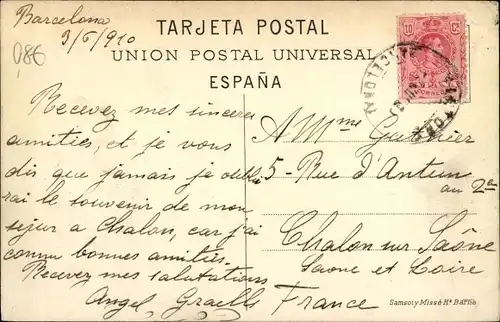 Barcelona
3/6/910
086
TARJETA POSTAL
UNION POSTAL UNIVERSAL
ESPAÑA
10 Cs
CORREOS
Recevez mes sinceres
amities, et je vous
dis que jamais je oublie
rai le souvenir de mon
sejur a Chalon, car j'ai
connu bonnes amities.
Recevez mes salutations
Angel Graells
A Mme
5 - Rue d'Autun
au 2e
Chalon sur Saône
Saone et Loire
France
Samsot y Missé Hs Barna